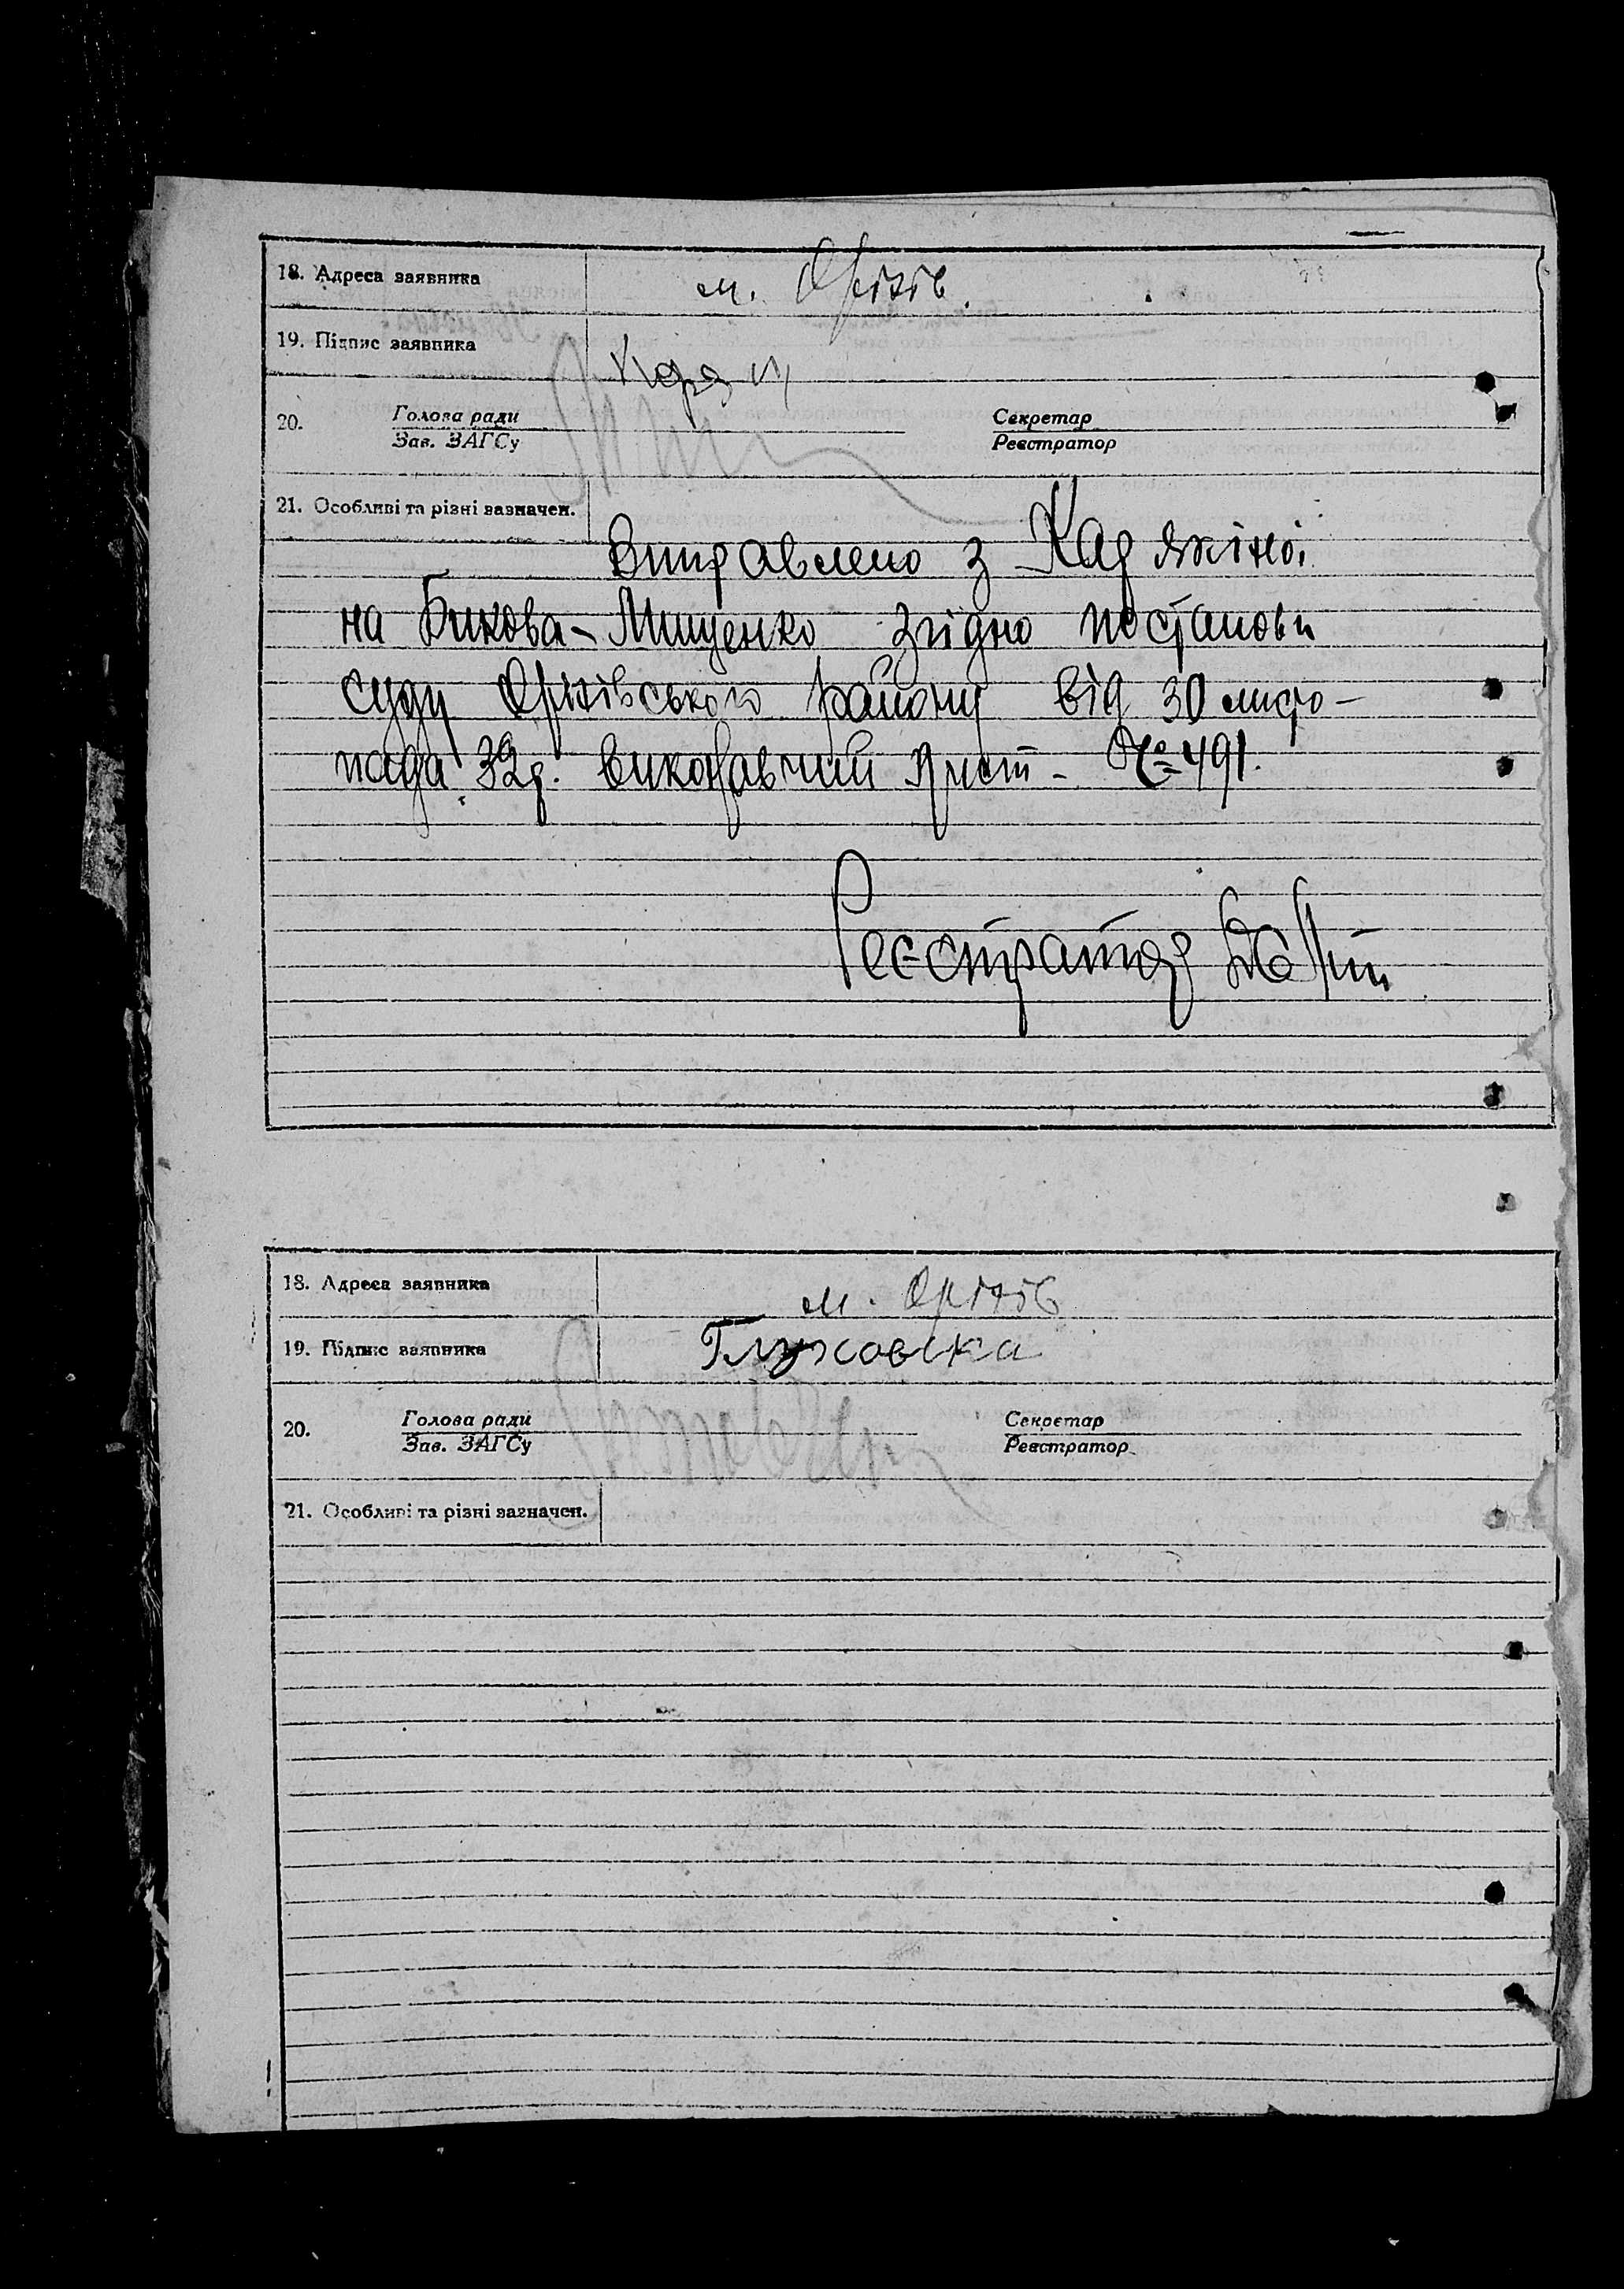 18. Адреса заявника м. Оріхів.
19. Підпис заявника
20. Голова ради Секретар
Зав. ЗАГСу Реєстратор
21. Особливі та різні зазначен.
Виправлено з
на Бикова-Мищенко згідно постанови
суду Оріхівського району від 30 листо-
пада 32р. виконавчий лист - № 491.
Реєстратор
18. Адреса заявника м. Оріхів
19. Підпис заявника Глуховська
20. Голова ради Секретар
Зав. ЗАГСу Реєстратор
21. Особливі та різні зазначен.